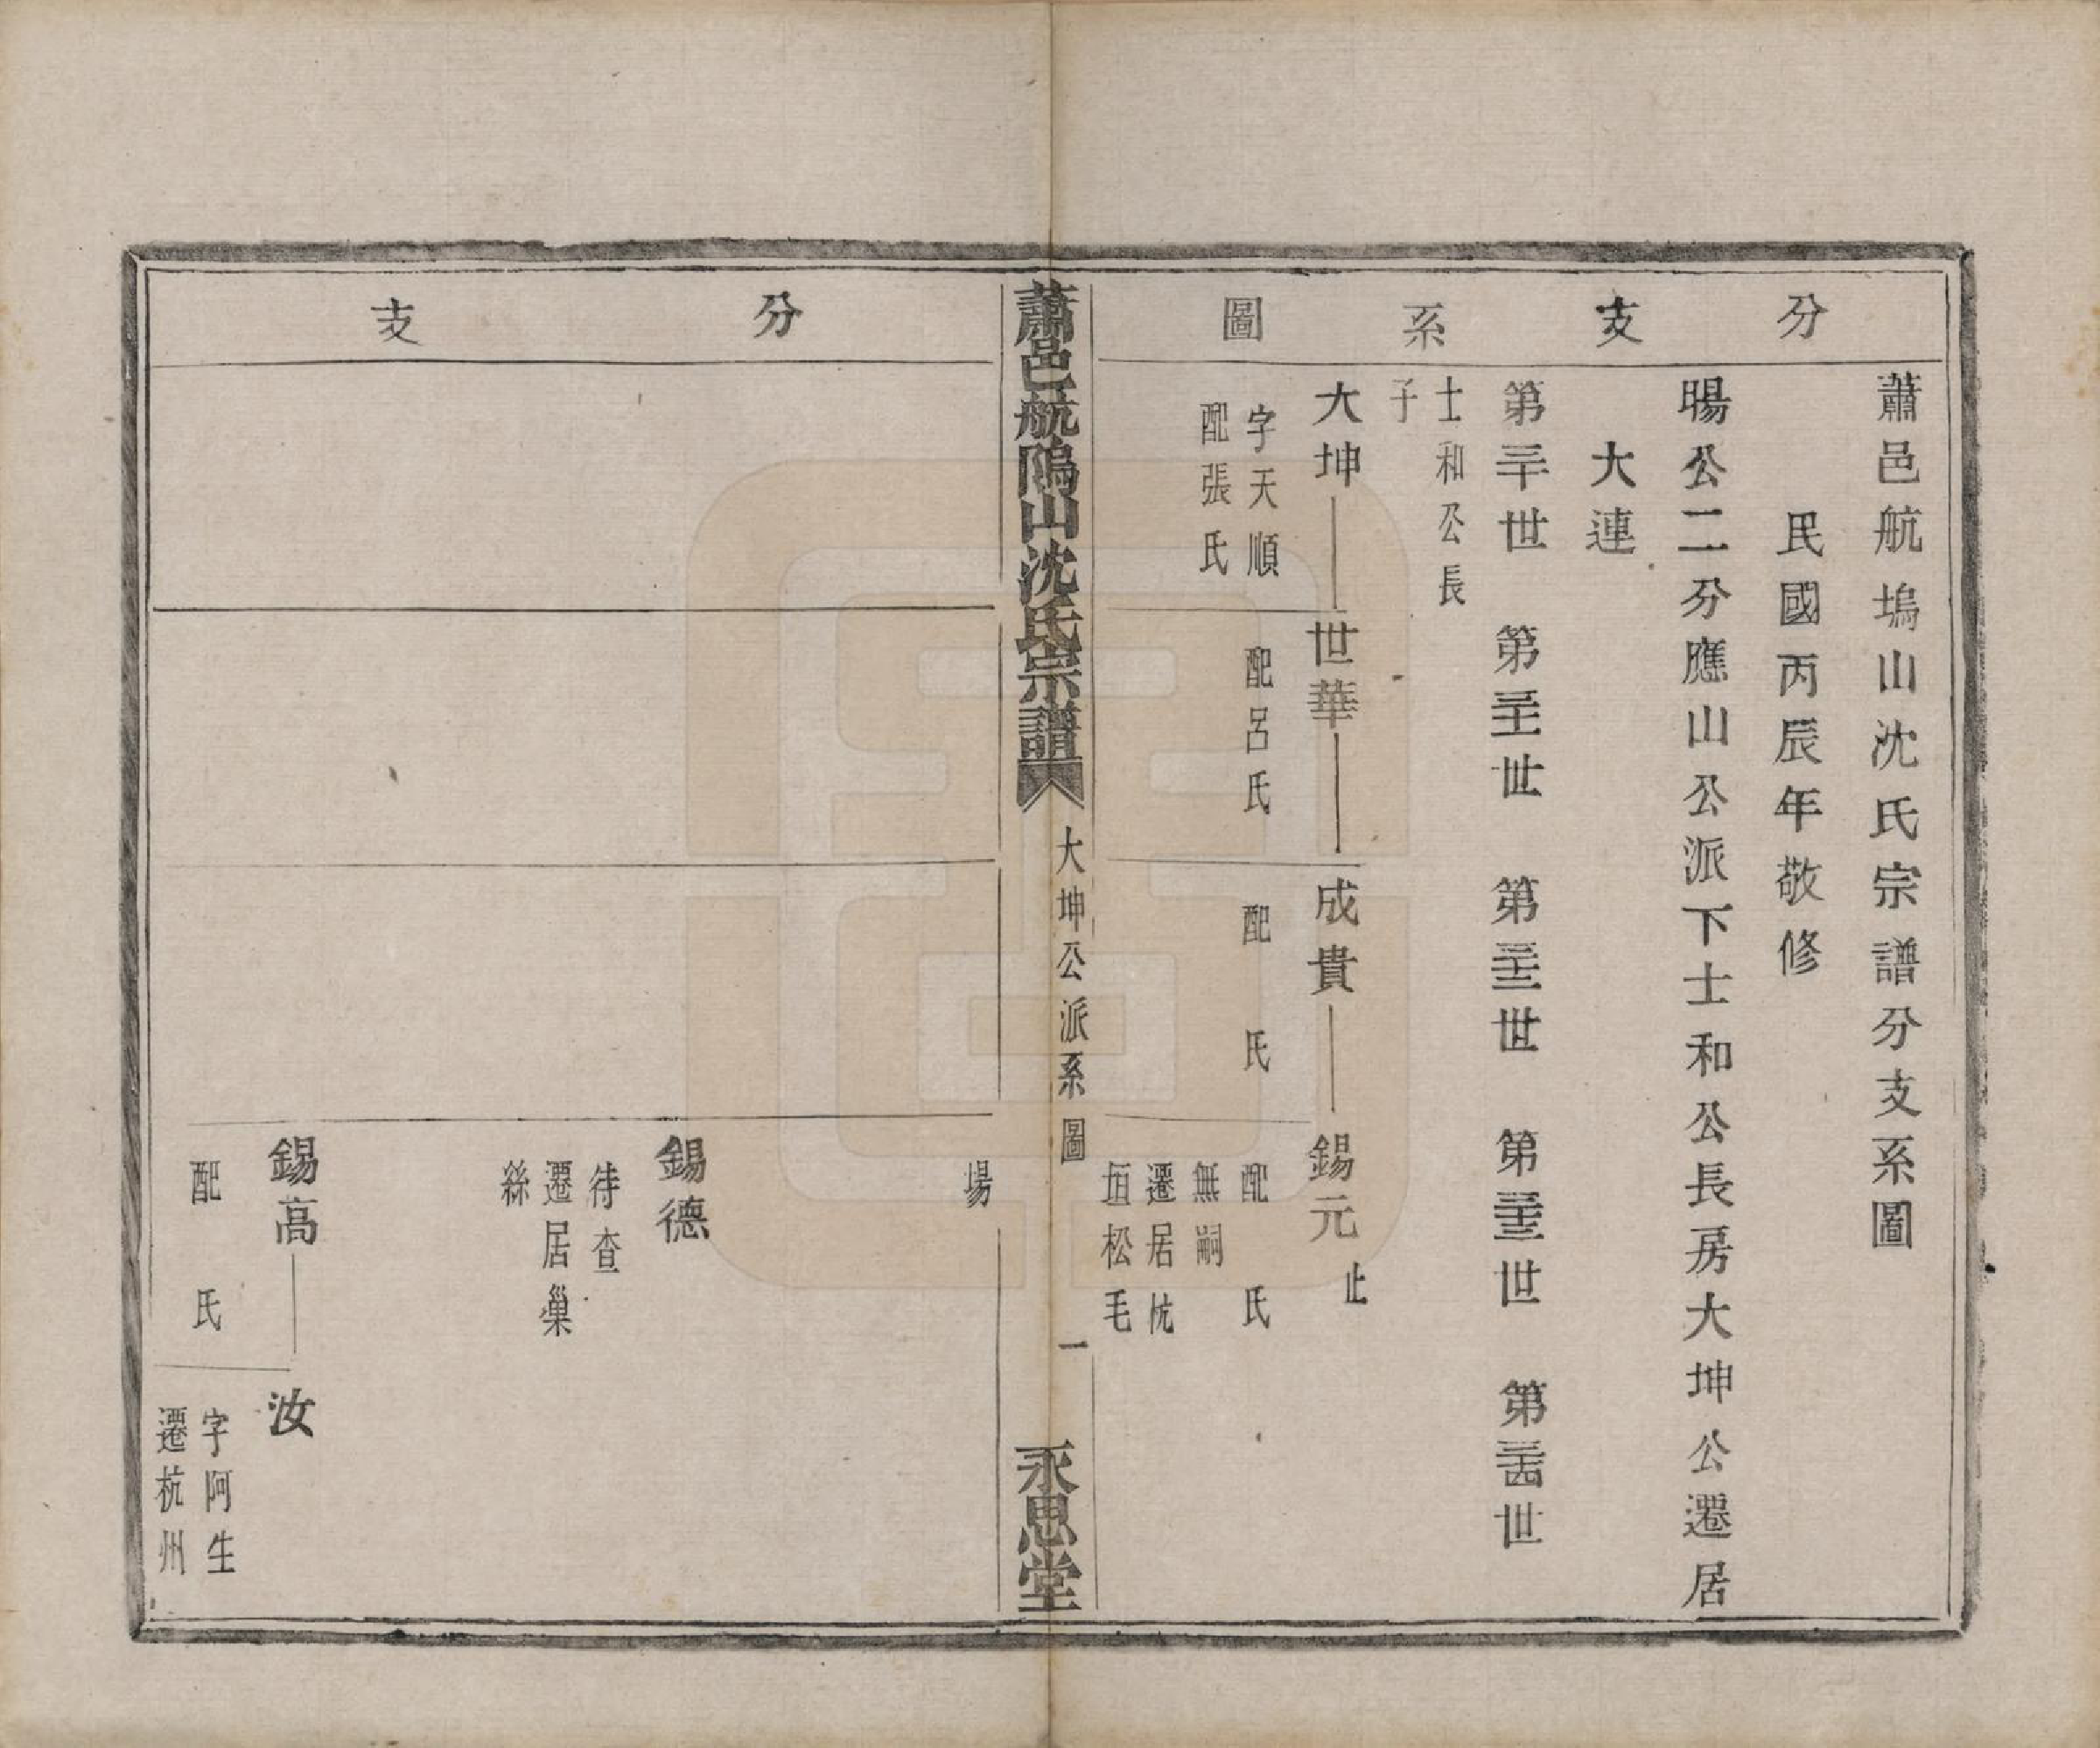 分支系圖
蕭邑航塢山沈氏宗譜分支系圖
民國丙辰年敬修
暘公二分應山公派下士和公長房大坤公遷居
大連
第三十世
第三十一世
第三十二世
第三十三世
第三十四世
士和公長
子
大坤
字天順
配張氏
世華
配呂氏
成貴
配　氏
錫元
止
配　氏
無嗣
遷居杭
垣松毛
蕭邑航隖山沈氏宗譜
大坤公派系圖
一
永思堂
分支
場
錫德
待查
遷居巢
絲
錫高
配　氏
汝
字阿生
遷杭州